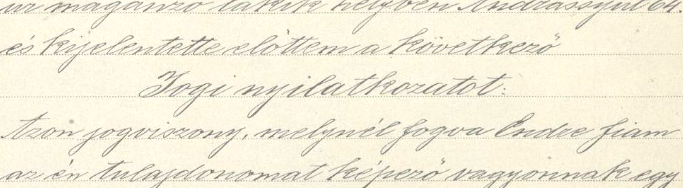 úr magánzó lakik helyben Andrássyút 64.
és kijelentette előttem a következő
Jogi nyilatkozatot:
Azon jogviszony, melynél fogva Endre fiam
az én tulajdonomat képező vagyonnak egy